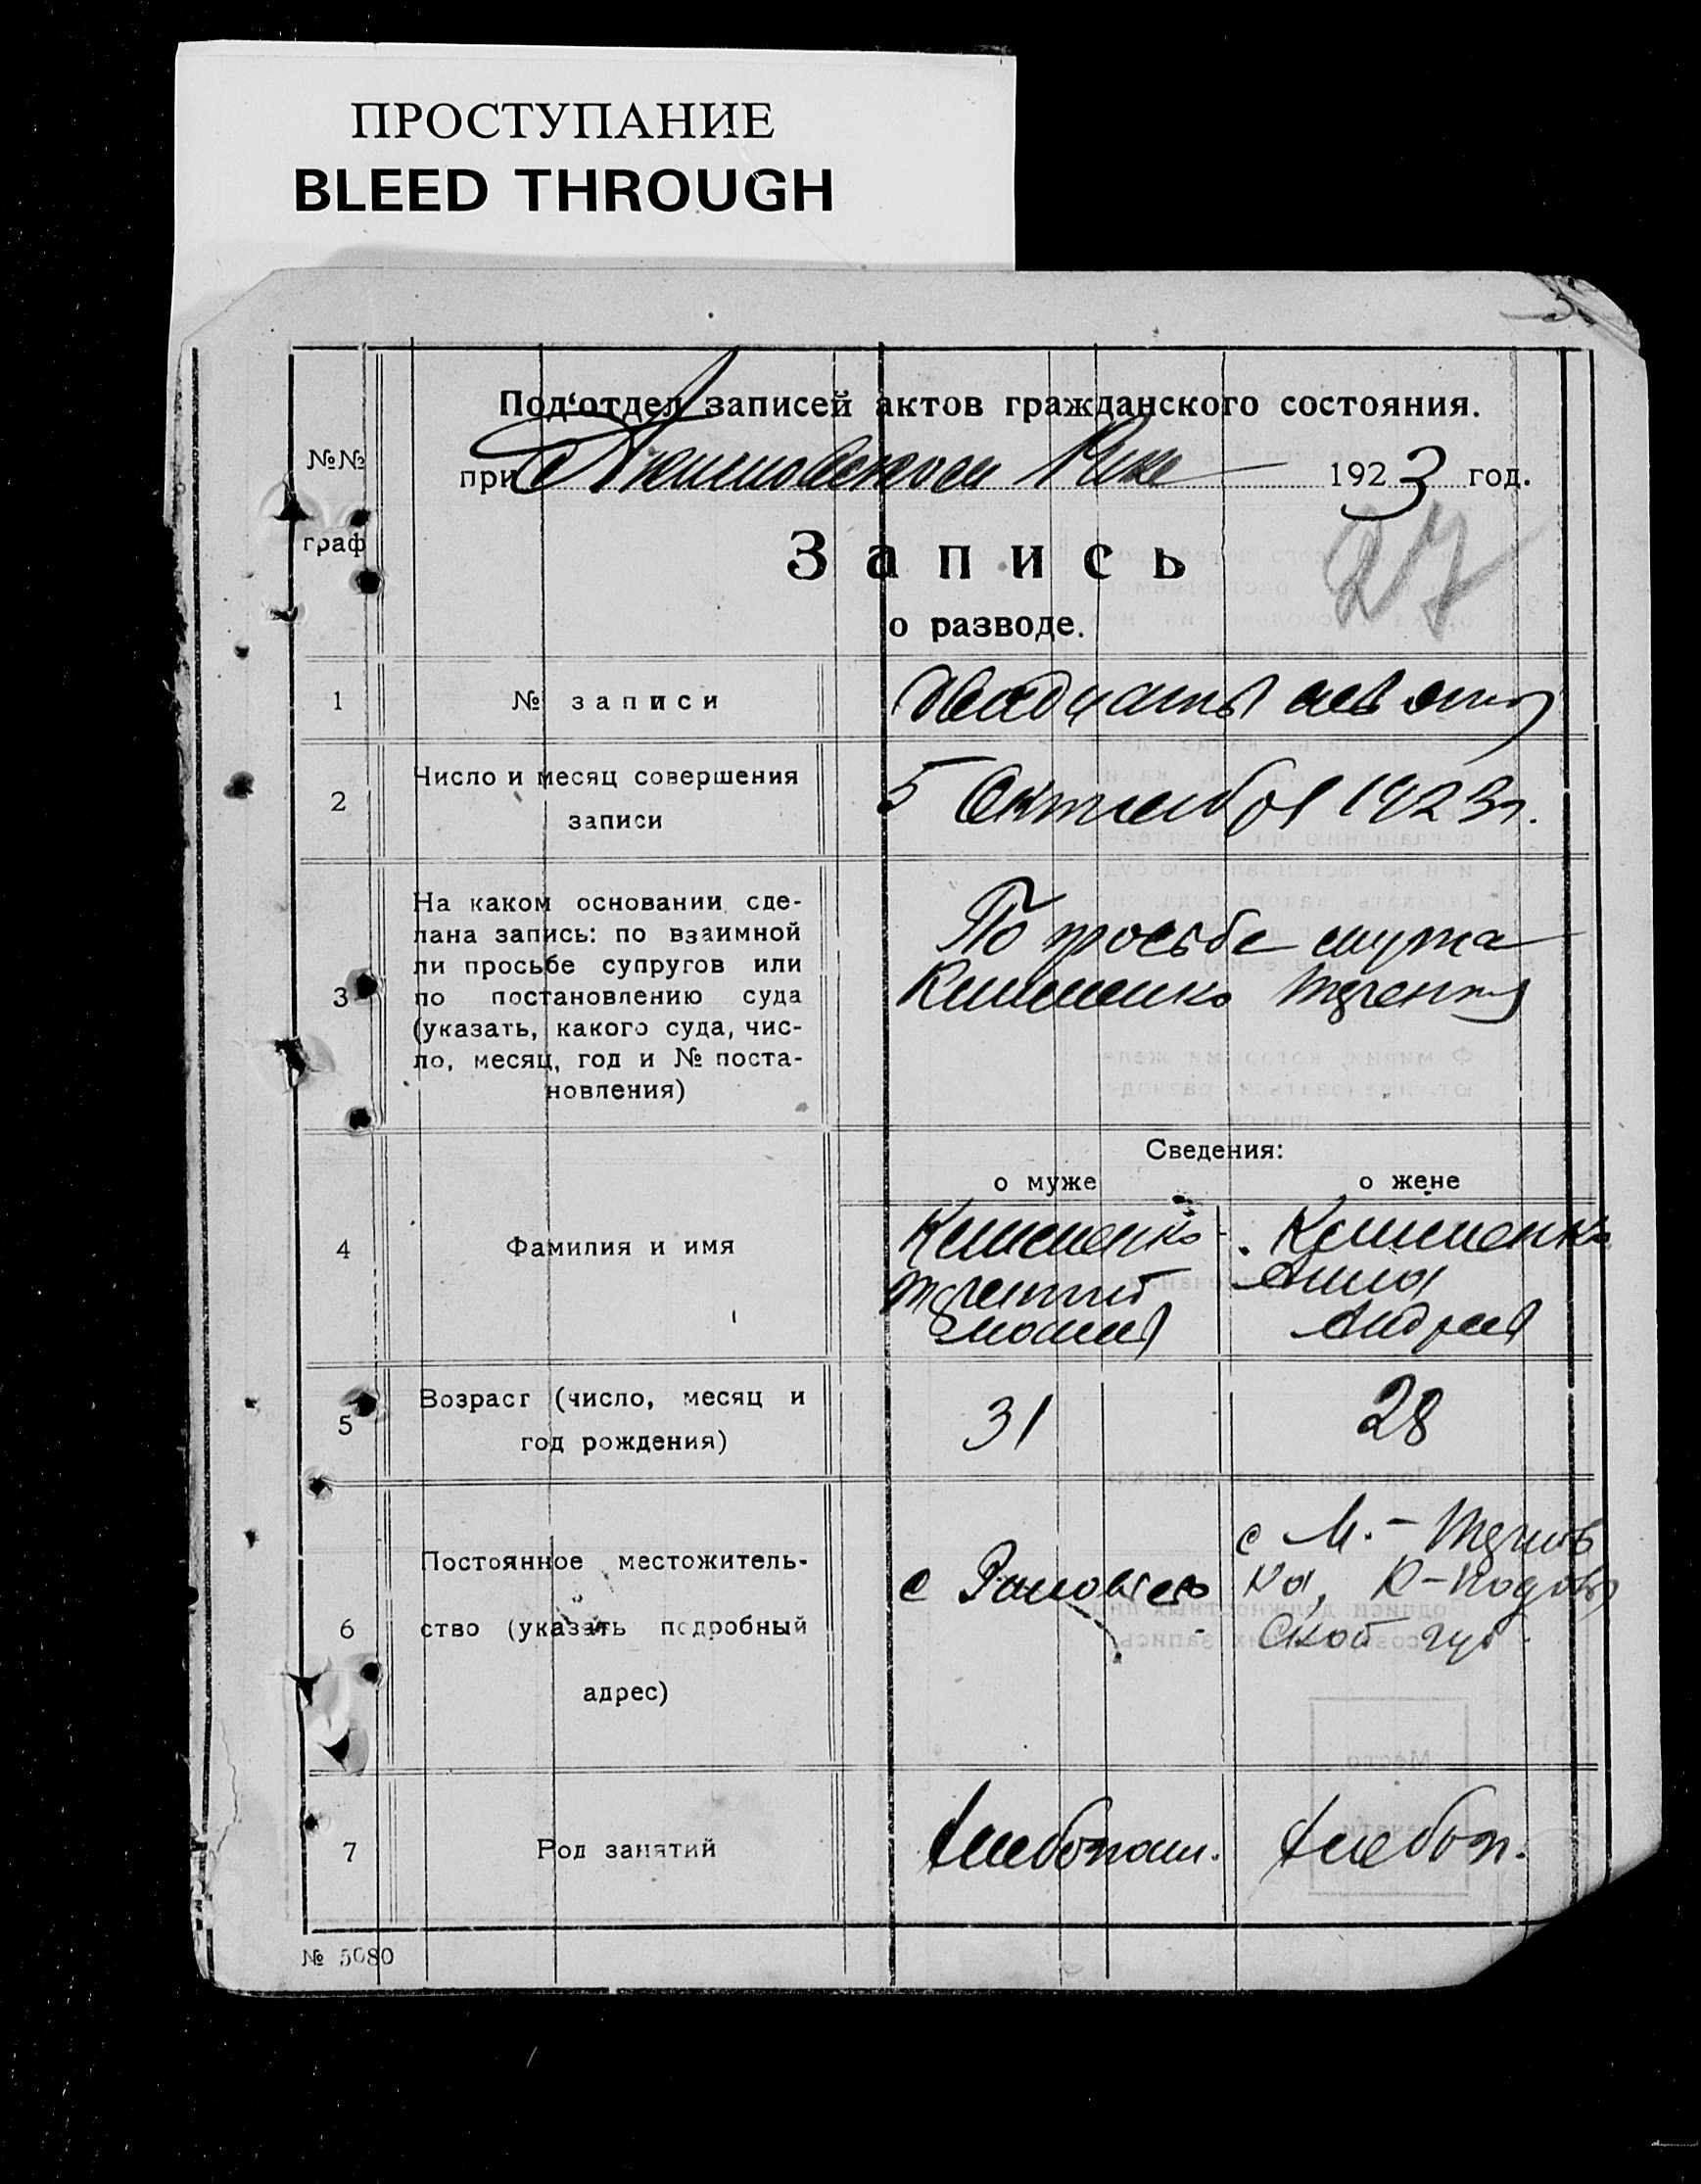 ПРОСТУПАНИЕ
BLEED THROUGH
Под‘отдел записей актов гражданского состояния.
№№
при 1923 год.
граф
Запись
27
о разводе.
1 № записи
2 Число и месяц совершения
записи
5 Октября 1923 г.
На каком основании сде-
лана запись: по взаимной
ли просьбе супругов или
3 по постановлению суда
(указать, какого суда, чис-
ло, месяц, год и № поста-
новления)
По просьбе мужа
Клименко
Сведения:
о муже о жене
4 Фамилия и имя
Клименко Клименко
Анна
Андрея
5 Возраст (число, месяц и
год рождения)
31 28
Постоянное местожитель-
6 ство (указать подробный
адрес)
с М.-
с К-Подоль
ской губ.
7 Род занятий
Хлебопаш. Хлебоп.
№ 5080